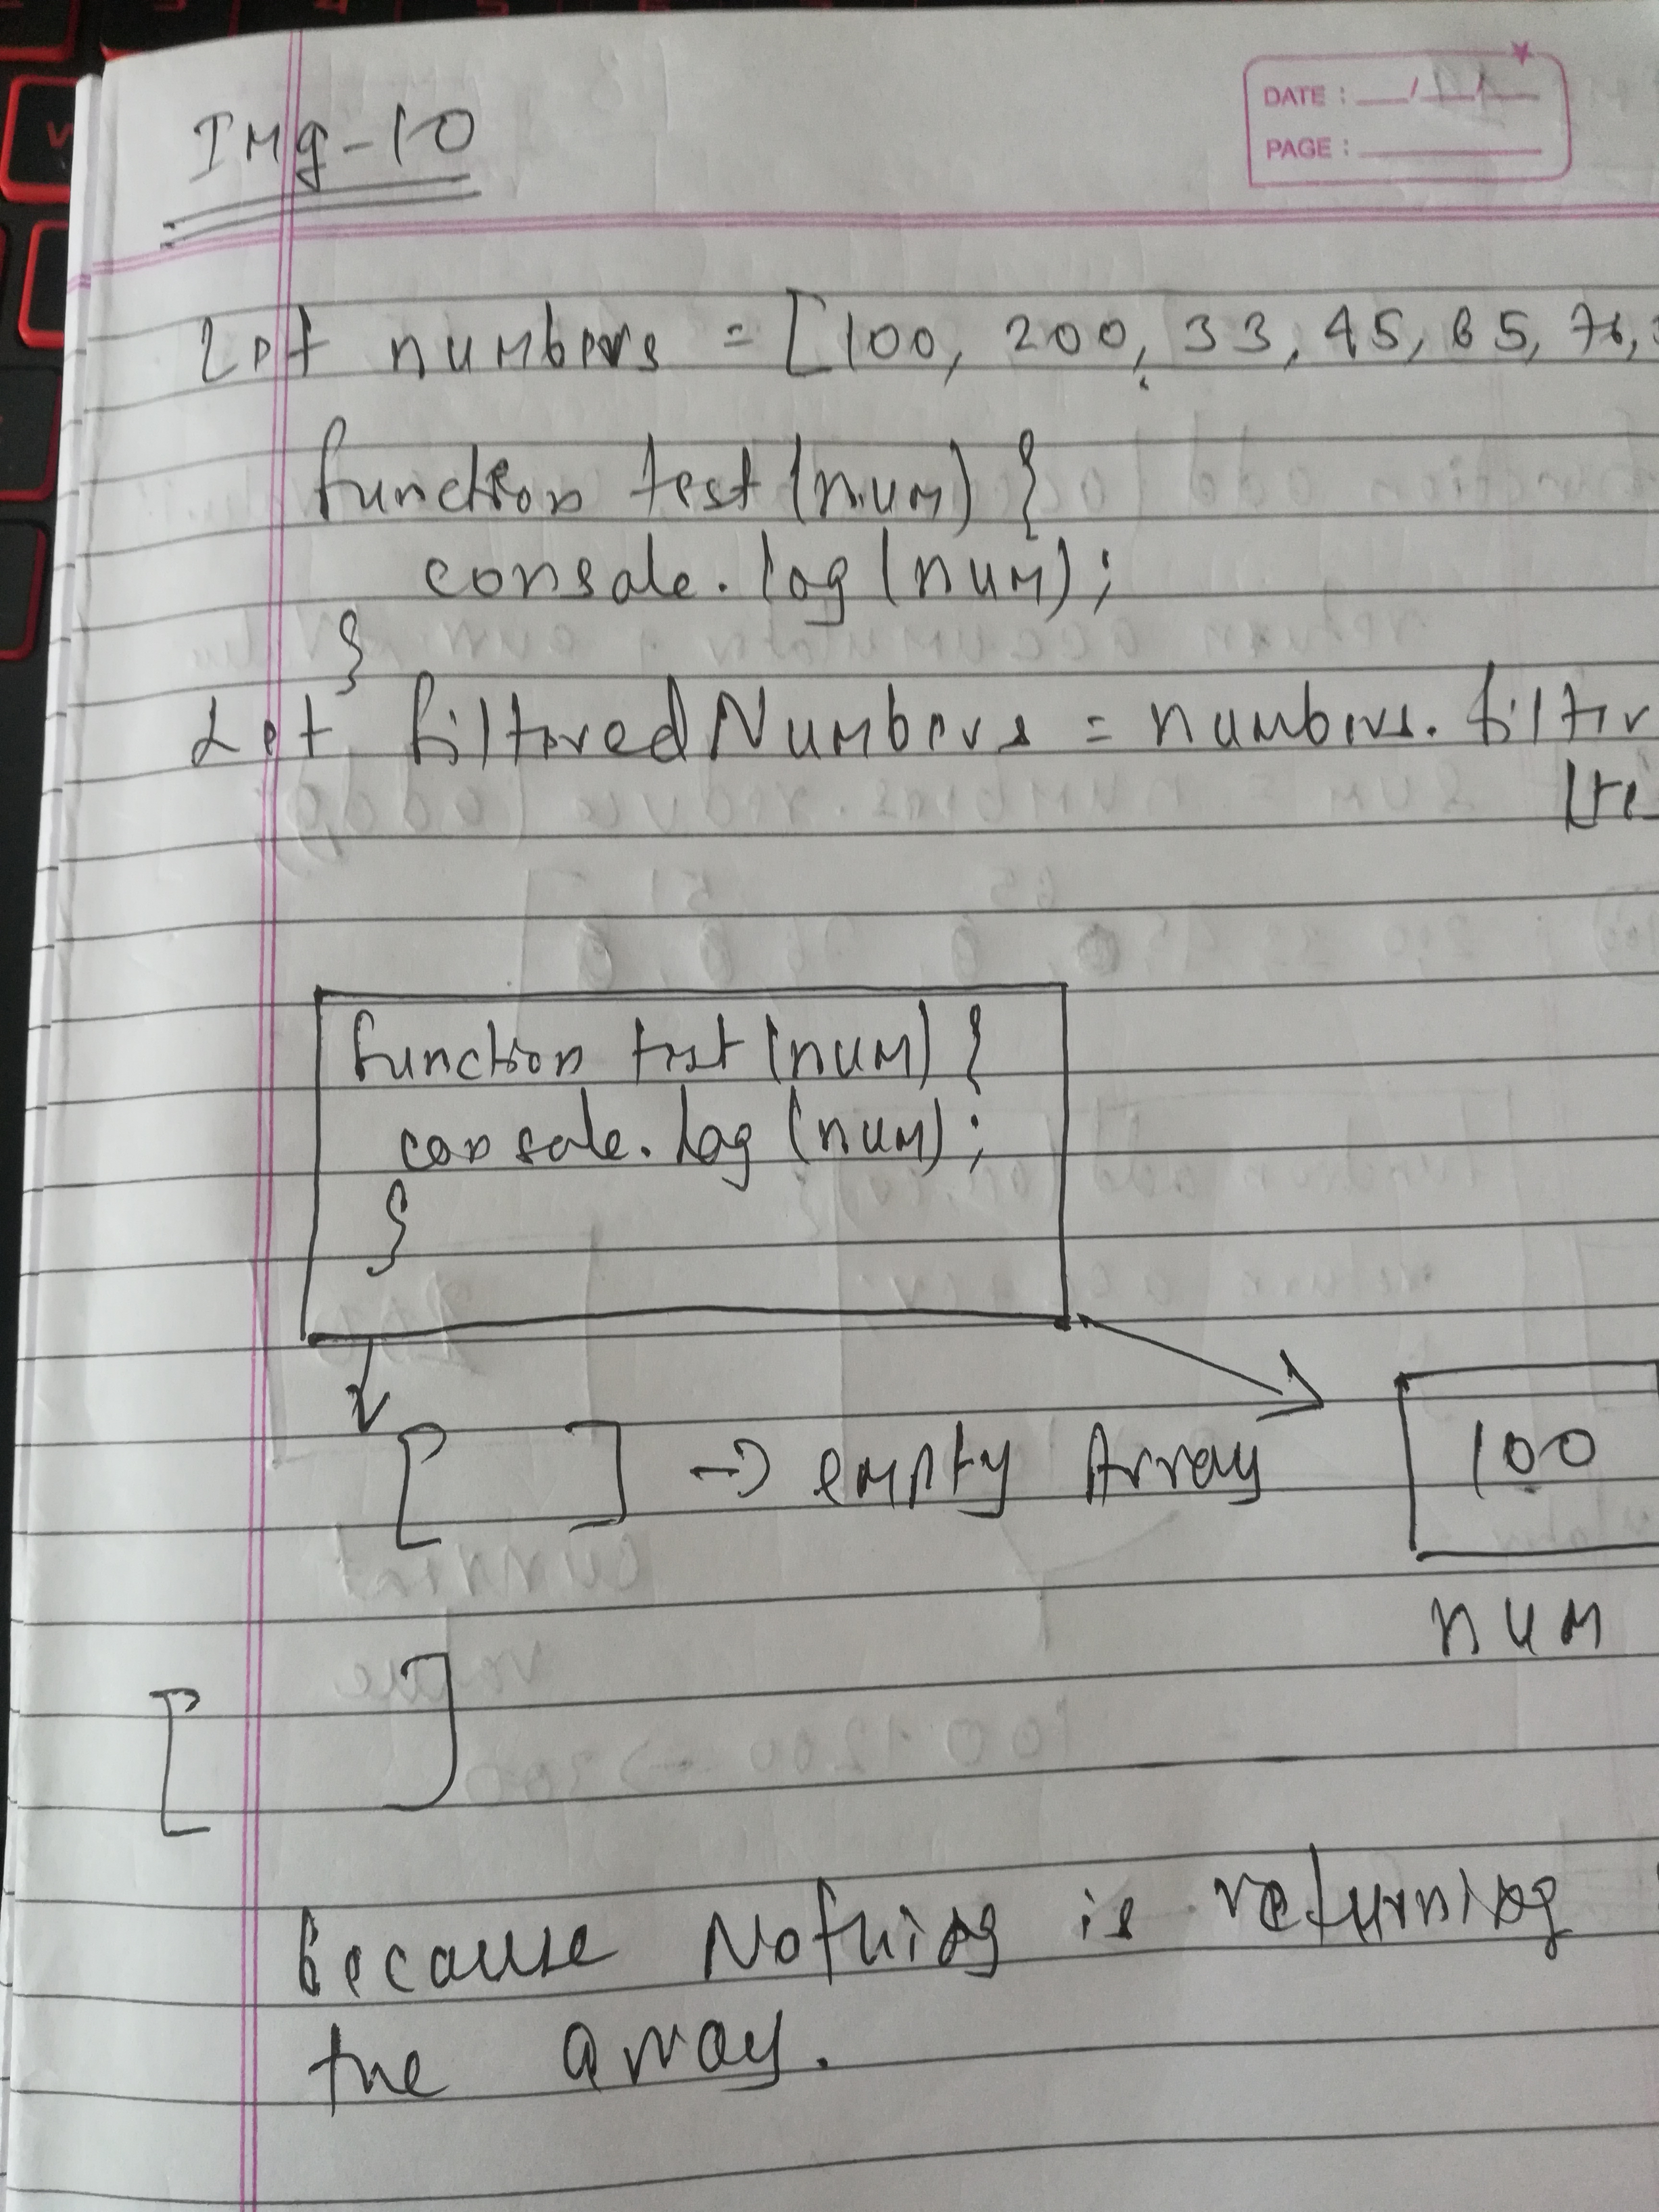 Img-10
DATE :
PAGE :
Let numbers = [100, 200, 33, 45, 65, 76,
function test (num) {
console.log (num);
}
Let filteredNumbers = numbers. filter
function test (num) {
console.log (num);
}
[ ] → empty Array
100
num
[ ]
Because Nothing is returning
the array.